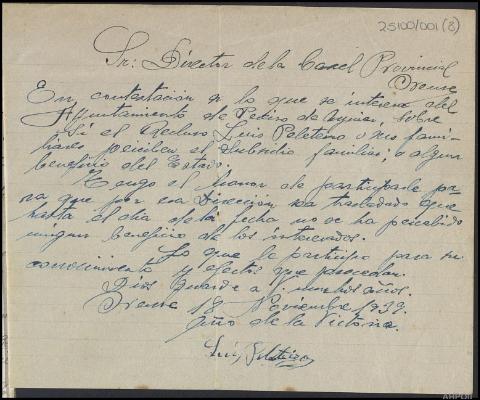 25100/001 (8)
Sr: Director de la Carcel Provincial
Orense
En contestación a lo que se interesa del
Ayuntamiento de Pedro de Aguiar, sobre
Si el Recluso Luis Peleteiro o sus fami-
liares perciben el Subsidio familiar; o algun
beneficio del Estado.
Tengo el honor de participarle pa-
ra que por esa Dirección sea trasladado que
hasta el dia de la fecha no se ha percibido
ningun beneficio de los interesados.
Lo que le participo para su
conocimiento y efectos que procedan.
Dios Guarde a V. muchos años.
Orense 18 Noviembre 1939.
Año de la Victoria.
Luis Peleteiro